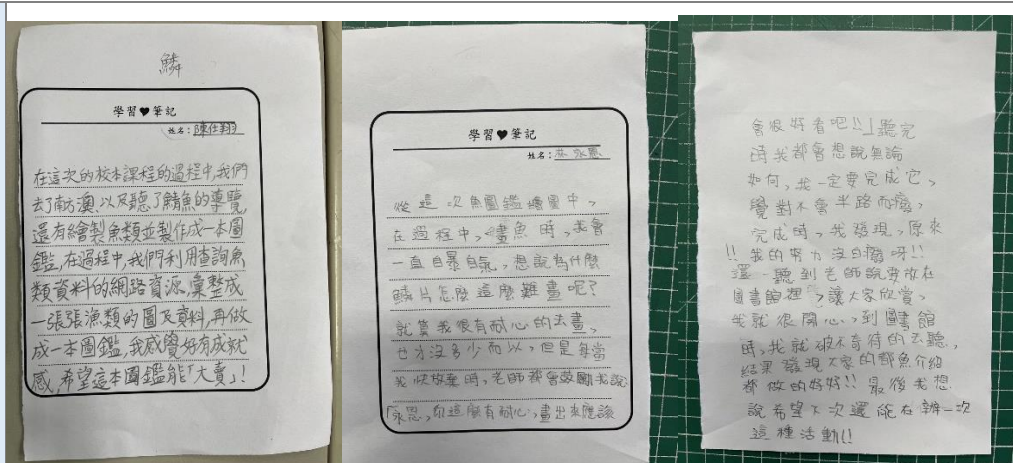 鱗
學習♥筆記
姓名：陳仕翔
在這次的校本課程的過程中,我們
去了南方澳,以及聽了鯖魚的導覽,
還有繪製魚類並製作成一本圖
鑑,在過程中,我們利用查詢魚
類資料的網路資源,彙整成
一張張漁類的圖及資料,再做
成一本圖鑑,我感覺好有成就
感,希望這本圖鑑能「大賣」!
學習♥筆記
姓名：永恩
從這次魚圖鑑繪畫中,
在過程中,畫魚時,我會
一直自暴自氣,想說為什麼
鱗片怎麼這麼難畫呢?
就算我很有耐心的去畫,
也才沒多少而以,但是每當
我快放棄時,老師都會鼓勵我說
「永恩,你這麼有耐心,畫出來應該
會很好看吧!!」聽完
時我都會想說無論
如何,我一定要完成它,
覺對不會半路而廢,
完成時,我發現,原來
!!我的努力沒白費呀!!
還一聽到老師說要放在
圖書館裡,讓大家欣賞,
我就很開心,到圖書館
時,我就破不急待的去聽,
結果發現大家的都魚介紹
都做的好好!!最後我想
說希望下次還能在辨一次
這種活動!!